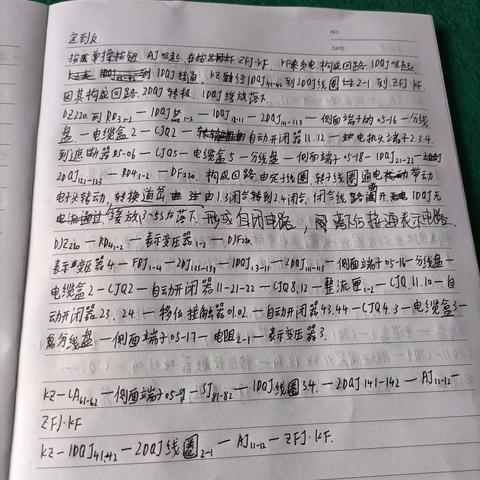 NO.
DATE
定到反
按下单操按钮 AJ吸起 在按 ZFJ·KF. KF 构成回路. 1DQJ吸起.
1DQJ接通, KZ 经1DQJ41-42到2DQJ线圈 2-1 到 ZFJ·KF
因其构成回路. 2DQJ转极. 1DQJ缓放落下.
DZ220 到RD3-2 — 1DQJ 1-2 — 1DQJ12-11 — 2DQJ111-113 — 侧面端子的05-16 — 分线
盘 — 电缆盒2 — CJQ2 — 自动开闭器11.12 — 电机头端子2.3.4
到遮断器05-06 — CJQ5 — 电缆盒5 — 分线盘 — 侧面端子05-18 — 1DQJ21-22 —
2DQJ121-123 — RD4-2 — DF220. 构成回路 由定子线圈 转子线圈通电 带动
电子头转动, 转换道岔 由 1.3闭合转到2.4闭合, 闭合线路 1DQJ无
电流通过 缓放1~3S后落下 形成自闭电路, 离后接通表示电路
DJZ220 — RD4-2 — 表示变压器1-2 — DJF220.
表示变压器4 — FBJ1-4 — 2DJ133-131 — 1DQJ13-11 — 2DQJ111-113 — 侧面端子05-16 — 分线盘 —
电缆盒2 — CJQ2 — 自动开闭器11-21-22 — CJQ8.12 — 整流匣1-2 — CJQ.11.10 — 自
动开闭器23.24. — 移位接触器01.02 — 自动开闭器43.44 — CJQ4.3 — 电缆盒3 —
分线盘 — 侧面端子05-17 — 电阻2-1 — 表示变压器3.
KZ — CA61-62 — 侧面端子05-9 — SJ81-82 — 1DQJ线圈3.4 — 2DQJ141-142 — AJ11-12 —
ZFJ·KF
KZ — 1DQJ41-42 — 2DQJ线圈2-1 — AJ11-12 — ZFJ·KF.